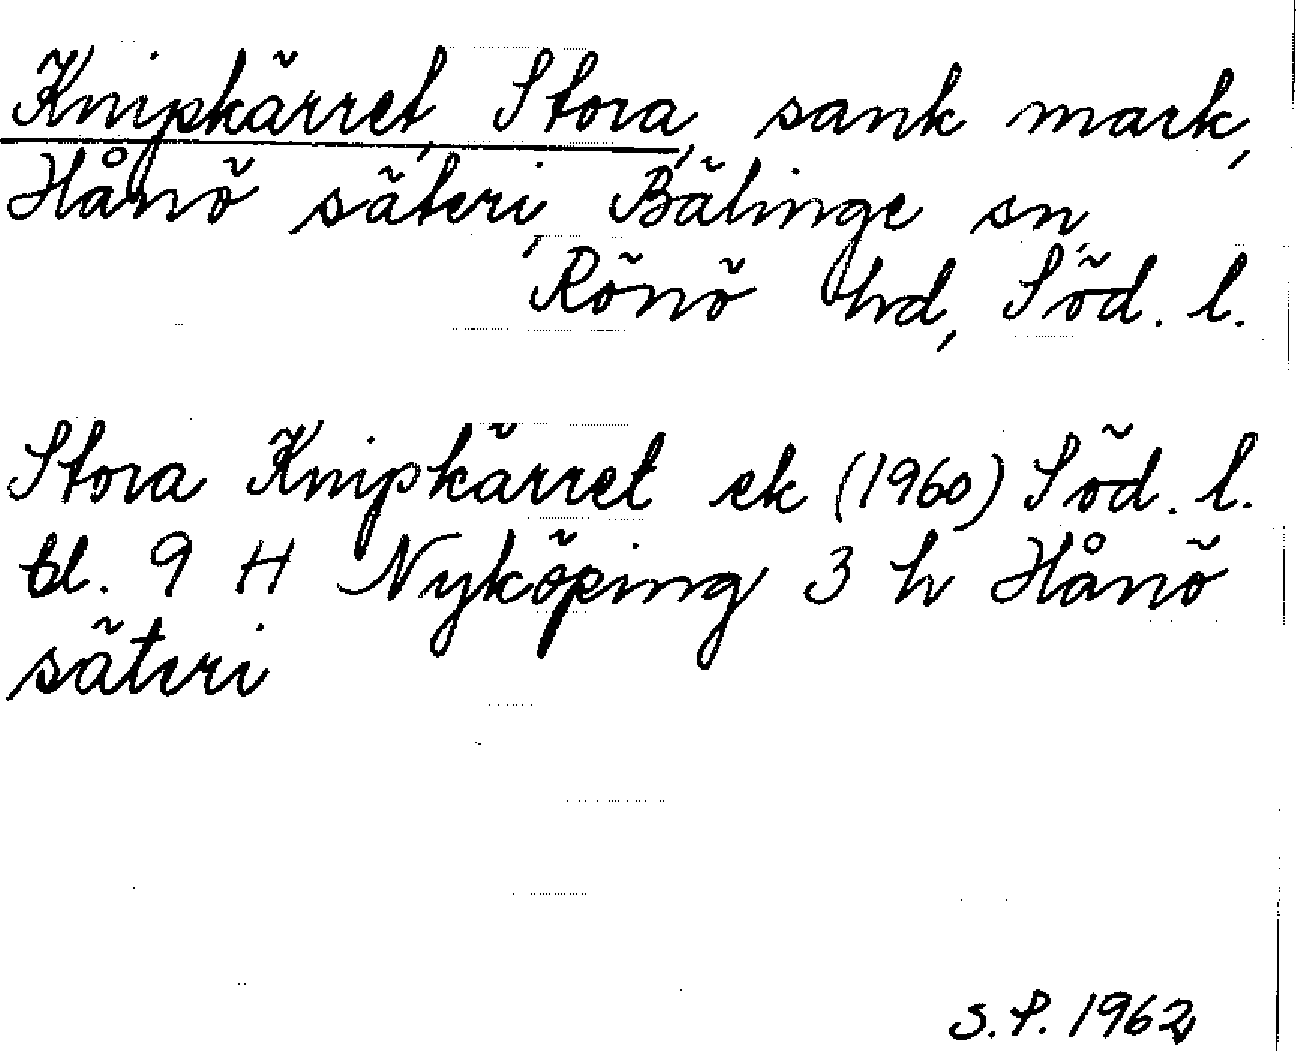 Knipkärret, Stora, sank mark,
Hånö säteri, Bälinge sn,
Rönö hd, Söd. l.
Stora Knipkärret ek (1960) Söd. l.
bl. 9 H Nyköping 3 h Hånö
säteri
S.P. 1962